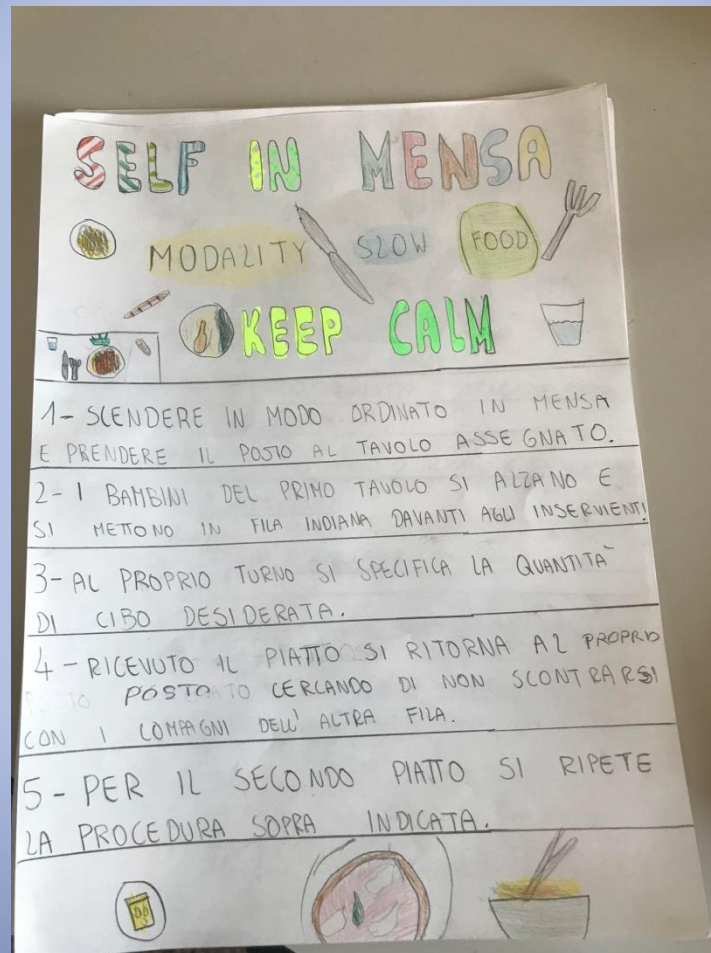 SELF IN MENSA
MODALITY SLOW FOOD
KEEP CALM
1- SCENDERE IN MODO ORDINATO IN MENSA
E PRENDERE IL POSTO AL TAVOLO ASSEGNATO.
2- I BAMBINI DEL PRIMO TAVOLO SI ALZANO E
SI METTONO IN FILA INDIANA DAVANTI AGLI INSERVIENTI
3- AL PROPRIO TURNO SI SPECIFICA LA QUANTITÀ
DI CIBO DESIDERATA.
4- RICEVUTO IL PIATTO SI RITORNA AL PROPRIO
POSTO CERCANDO DI NON SCONTRARSI
CON I COMPAGNI DELL'ALTRA FILA.
5- PER IL SECONDO PIATTO SI RIPETE
LA PROCEDURA SOPRA INDICATA.